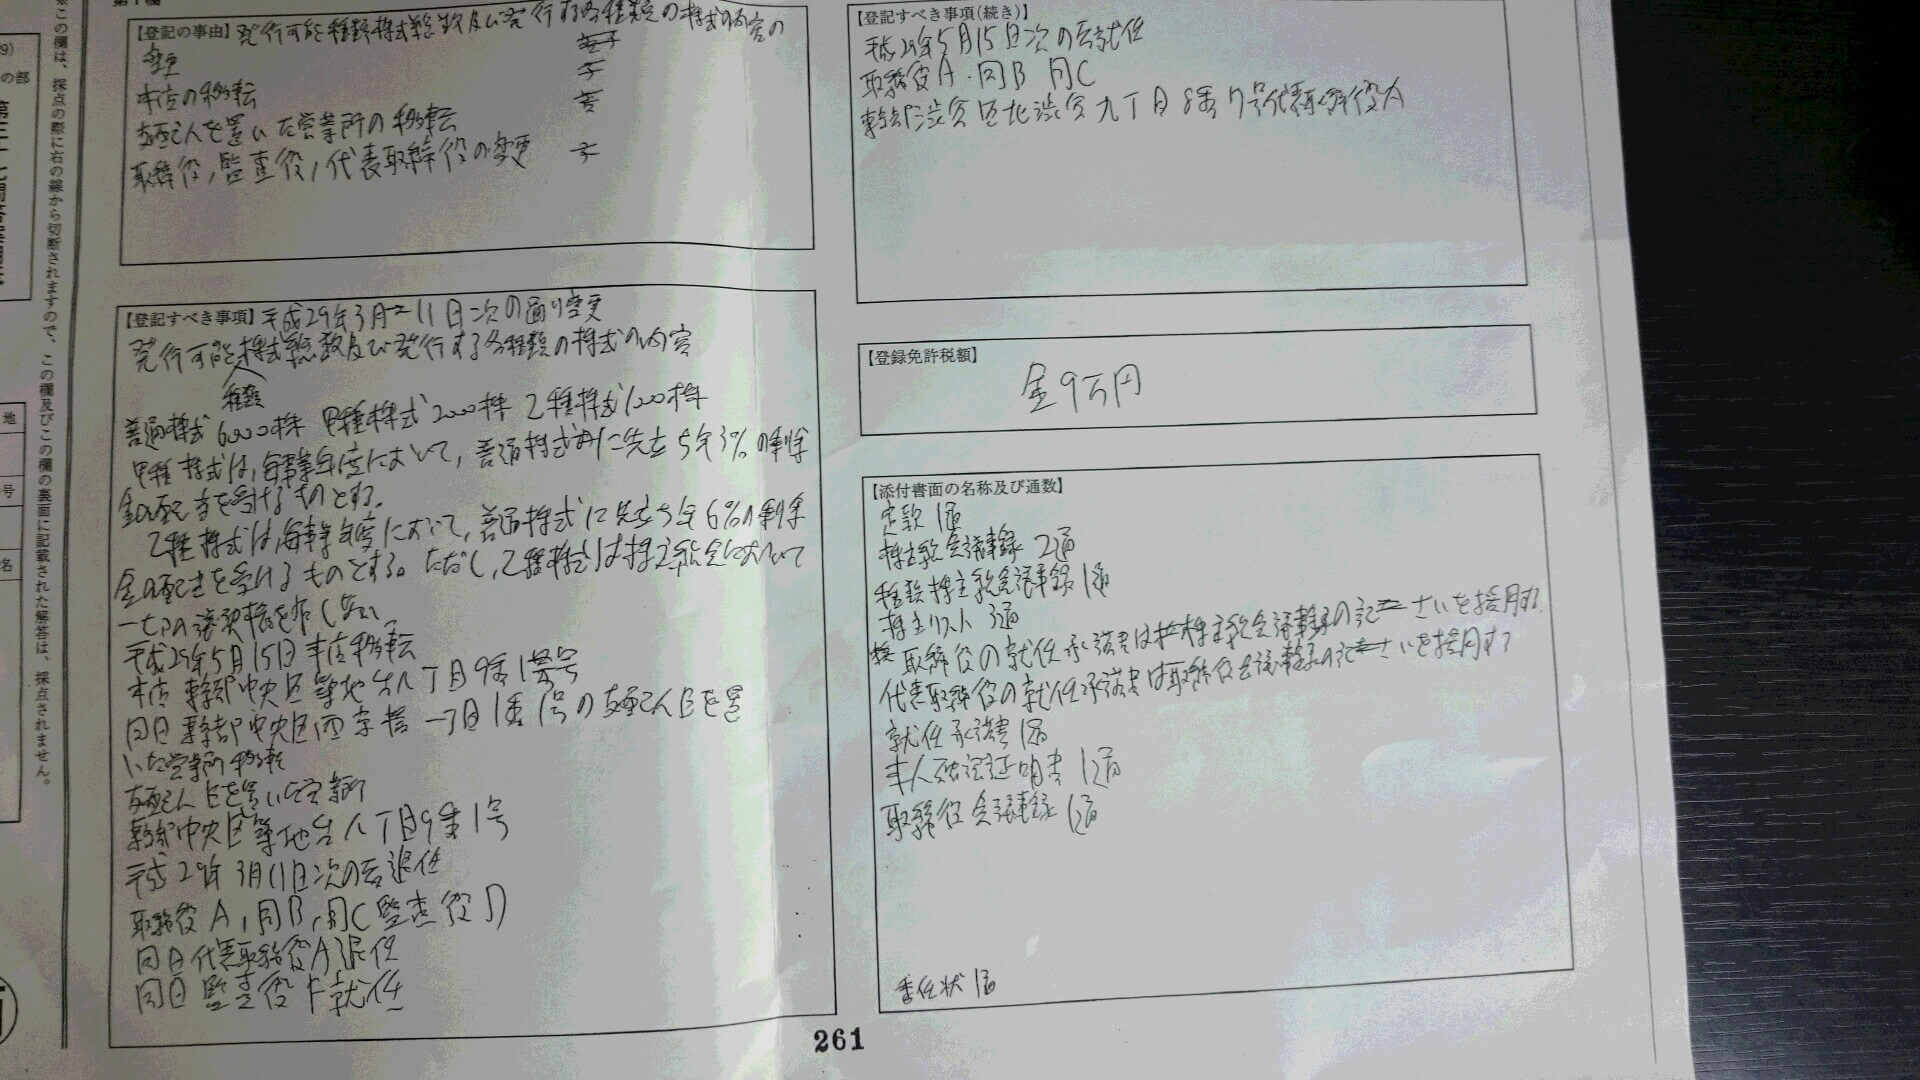 この欄は、採点の際に右の線から切断されますので、この欄及びこの欄の裏面に記載された解答は、採点されません。
第1欄
【登記の事由】発行可能種類株式総数及び発行する各種類の株式の内容の
変更
本店の移転
支配人を置いた営業所の移転
取締役,監査役,代表取締役の変更
【登記すべき事項】平成29年3月11日次の通り変更
発行可能種類株式総数及び発行する各種類の株式の内容
普通株式 6000株 甲種株式 2000株 乙種株式
甲種株式は,毎事業年度において,普通株式に先立ち年3%の剰余
金の配当を受けるものとする。
乙種株式は,毎事業年度において,普通株式に先立ち年6%の剰余
金の配当を受けるものとする。ただし,乙種株式は株主総会において
一切の議決権を有しない。
平成29年5月15日本店移転
本店 東京都中央区築地台八丁目9番1号
同日東京都中央区西京橋一丁目1番1号の支配人Eを置
いた営業所移転
支配人Eを置いた営業所
東京都中央区築地台八丁目9番1号
平成29年3月11日次の者退任
取締役 A,同B,同C 監査役 D
同日代表取締役A退任
同日 監査役 F就任
【登記すべき事項(続き)】
平成29年5月15日次の者就任
取締役 A・同B 同C
東京都渋谷区北渋谷九丁目8番7号代表取締役A
【登録免許税額】
金9万円
【添付書面の名称及び通数】
定款 1通
株主総会議事録 2通
種類株主総会議事録 1通
株主リスト 3通
取締役の就任承諾書は株主総会議事録の記さいを援用する
代表取締役の就任承諾書は取締役会議事録の記さいを援用する
就任承諾書 1通
本人確認証明書 1通
取締役会議事録 1通
委任状 1通
261